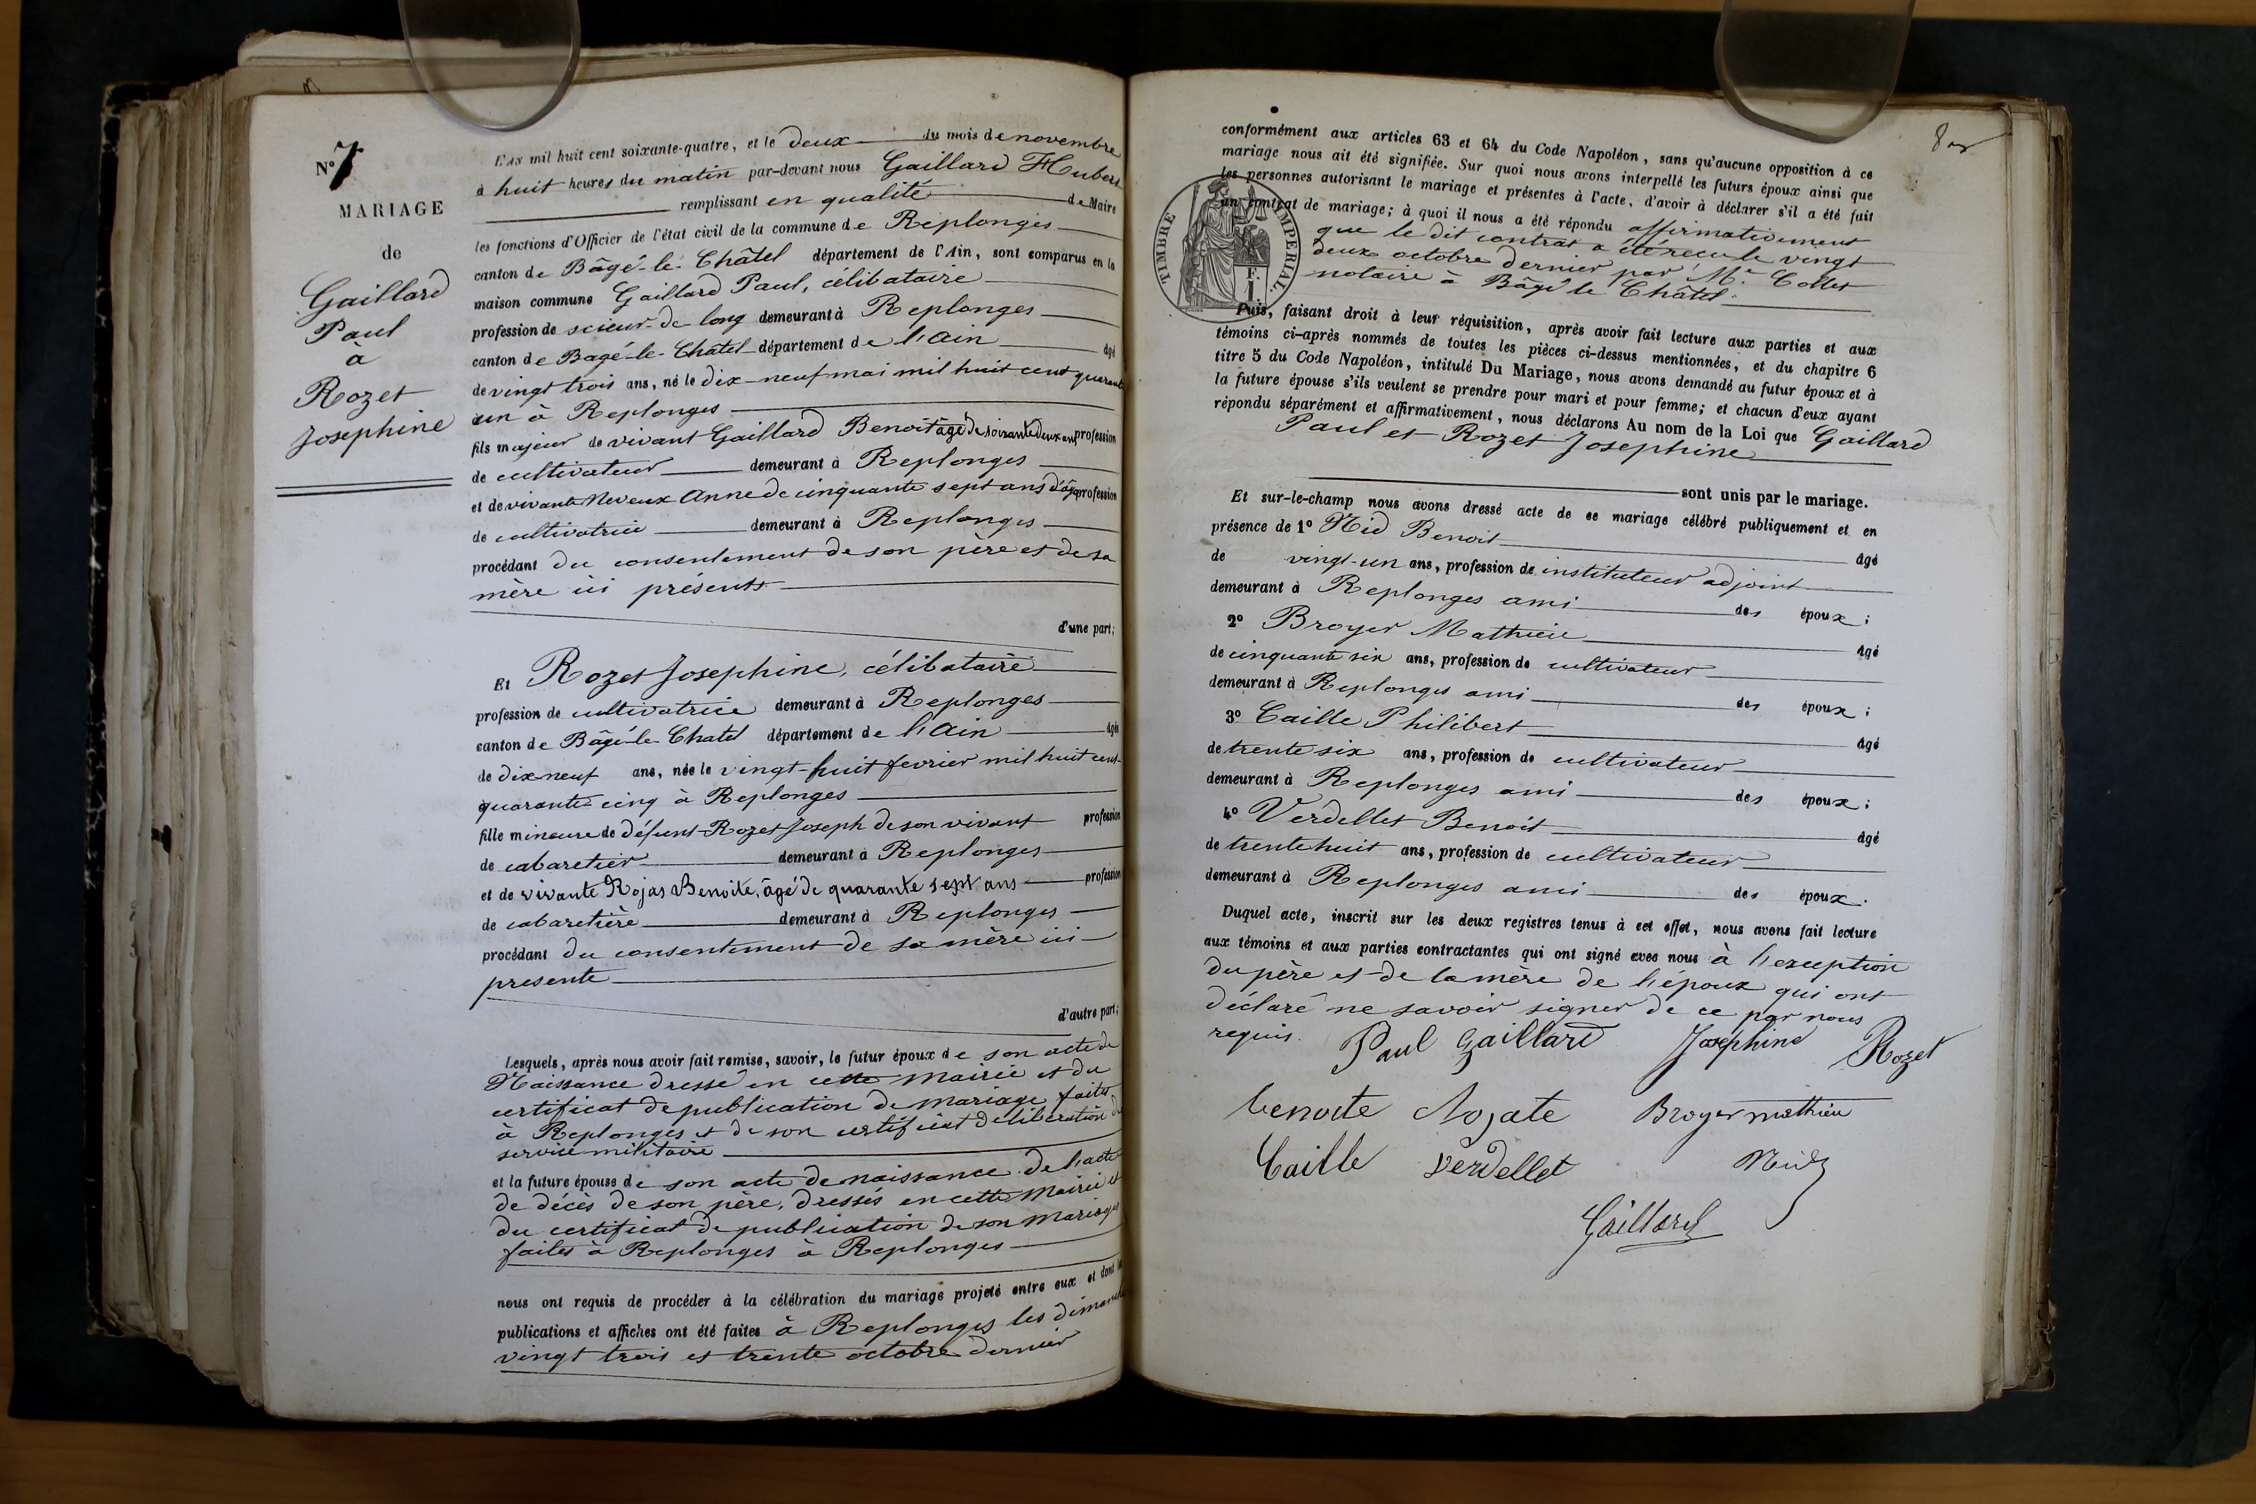 N.o 7
MARIAGE
de
Gaillard
Paul
à
Rozet
Josephine
L'AN mil huit cent soixante-quatre, et le deux du mois de novembre
à huit heures du matin par-devant nous Gaillard Hubert
remplissant en qualité de Maire
les fonctions d'Officier de l'état civil de la commune de Replonges
canton de Bâgé-le-Châtel département de l'Ain, sont comparus en la
maison commune Gaillard Paul, célibataire
profession de scieur de long demeurant à Replonges
canton de Bagé-le-Châtel département de l'Ain âgé
de vingt trois ans, né le dix-neuf mai mil huit cent quarante
un à Replonges
fils majeur de vivant Gaillard Benoit âgé de soixante deux ans profession
de cultivateur demeurant à Replonges
et de vivante Neveux Anne de cinquante sept ans d'âge profession
de cultivatrice demeurant à Replonges
procédant du consentement de son père et de sa
mère ici présents
d'une part;
Et Rozet Josephine, célibataire
profession de cultivatrice demeurant à Replonges
canton de Bâgé-le-Chatel département de l'Ain âgée
de dix neuf ans, née le vingt-huit février mil huit cent
quarante-cinq à Replonges
fille mineure de défunt Rozet Joseph de son vivant profession
de cabaretier demeurant à Replonges
et de vivante Rojas Benoite, âgé de quarante sept ans profession
de cabaretière demeurant à Replonges
procédant du consentement de sa mère ici
presente
d'autre part;
Lesquels, après nous avoir fait remise, savoir, le futur époux de son acte de
Naissance dressé en cette Mairie et du
certificat de publication de mariage faites
à Replonges et de son certificat de libération du
service militaire
et la future épouse de son acte de naissance de l'acte
de décès de son père, dressés en cette Mairie et
du certificat de publication de son Mariage
faites à Replonges à Replonges
nous ont requis de procéder à la célébration du mariage projeté entre eux et dont les
publications et affiches ont été faites à Replonges les dimanches
vingt trois et trente octobre dernier
conformément aux articles 63 et 64 du Code Napoléon, sans qu'aucune opposition à ce
mariage nous ait été signifiée. Sur quoi nous avons interpellé les futurs époux ainsi que
les personnes autorisant le mariage et présentes à l'acte, d'avoir à déclarer s'il a été fait
un contrat de mariage; à quoi il nous a été répondu affirmativement
que le dit contrat a été reçu le vingt
deux octobre dernier par M.e Collet
notaire à Bâgé le Châtel.
TIMBRE IMPERIAL.
Puis, faisant droit à leur réquisition, après avoir fait lecture aux parties et aux
témoins ci-après nommés de toutes les pièces ci-dessus mentionnées, et du chapitre 6
titre 5 du Code Napoléon, intitulé Du Mariage, nous avons demandé au futur époux et à
la future épouse s'ils veulent se prendre pour mari et pour femme; et chacun d'eux ayant
répondu séparément et affirmativement, nous déclarons Au nom de la Loi que Gaillard
Paul et Rozet Josephine
sont unis par le mariage.
Et sur-le-champ nous avons dressé acte de ce mariage célébré publiquement et en
présence de 1o Nid Benoit âgé
de vingt-un ans, profession de instituteur adjoint
demeurant à Replonges ami des époux;
2o Broyer Mathieu âgé
de cinquante six ans, profession de cultivateur
demeurant à Replonges ami des époux;
3o Caille Philibert âgé
de trente six ans, profession de cultivateur
demeurant à Replonges ami des époux;
4o Verdellet Benoit âgé
de trente huit ans, profession de cultivateur
demeurant à Replonges ami des époux.
Duquel acte, inscrit sur les deux registres tenus à cet effet, nous avons fait lecture
aux témoins et aux parties contractantes qui ont signé avec nous à l'exception
du père et de la mère de l'époux qui ont
déclaré ne savoir signer de ce par nous
requis.
Paul Gaillard Josephine Rozet
benoite Broyer mathieu
Caille verdellet Nid
Gaillard